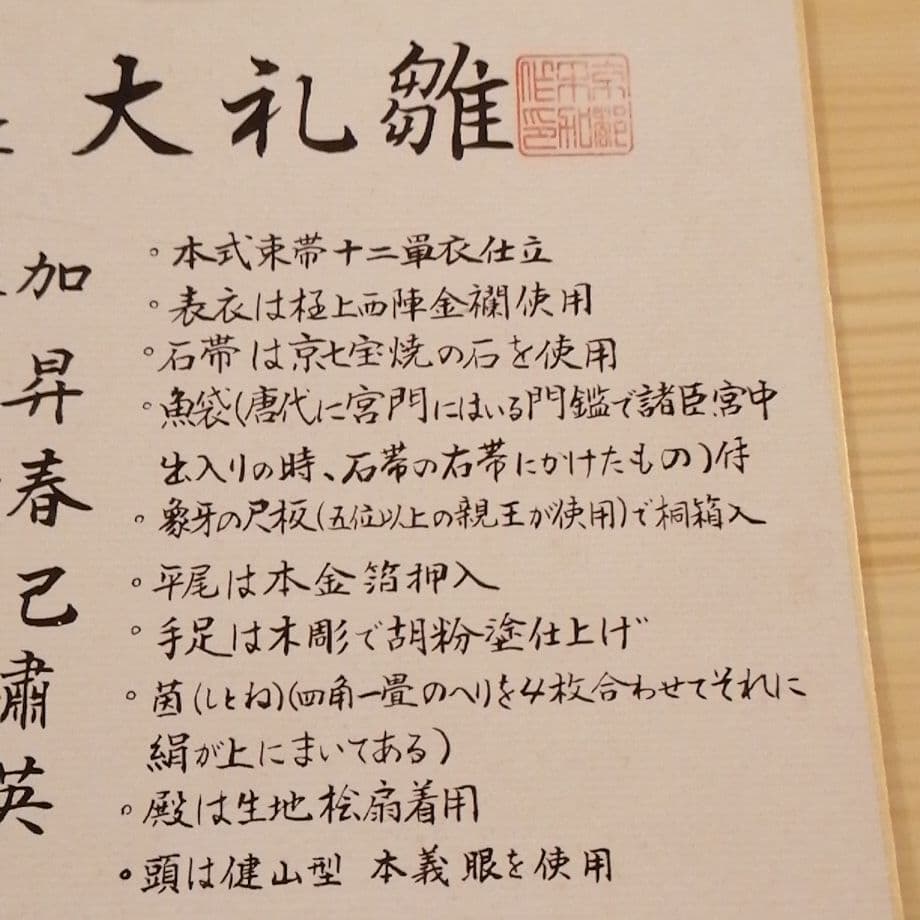 大礼雛
加
昇
春
己
嘯
英
◦本式束帯十二單衣仕立
◦表衣は極上西陣金襴使用
◦石帯は京七宝焼の石を使用
◦魚袋(唐代に宮門にはいる門鑑で諸臣宮中
出入りの時、石帯の右帯にかけたもの)付
◦象牙の尺板(五位以上の親王が使用)で桐箱入
◦平尾は本金箔押入
◦手足は木彫で胡粉塗仕上げ
◦茵(しとね)(四角一畳のへりを4枚合わせてそれに
絹が上にまいてある)
◦殿は生地桧扇着用
◦頭は健山型 本義眼を使用